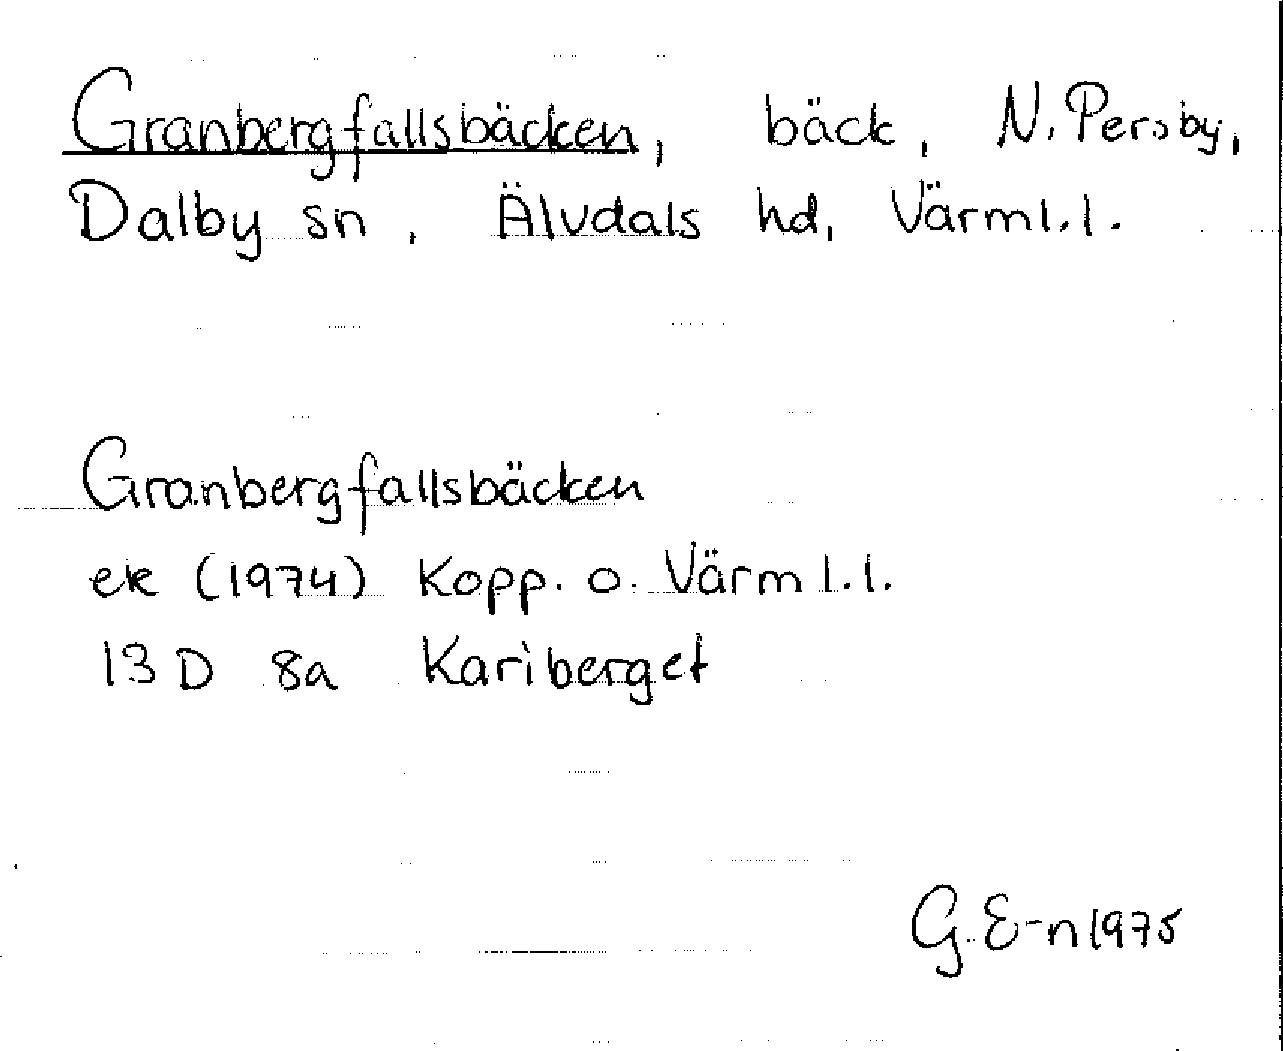 Granbergfallsbäcken, bäck, N. Persby,
Dalby sn, Älvdals hd, Värml.l.
Granbergfallsbäcken
ek (1974) Kopp. o. Värml.l.
13D 8a Kariberget
G. E-n 1975